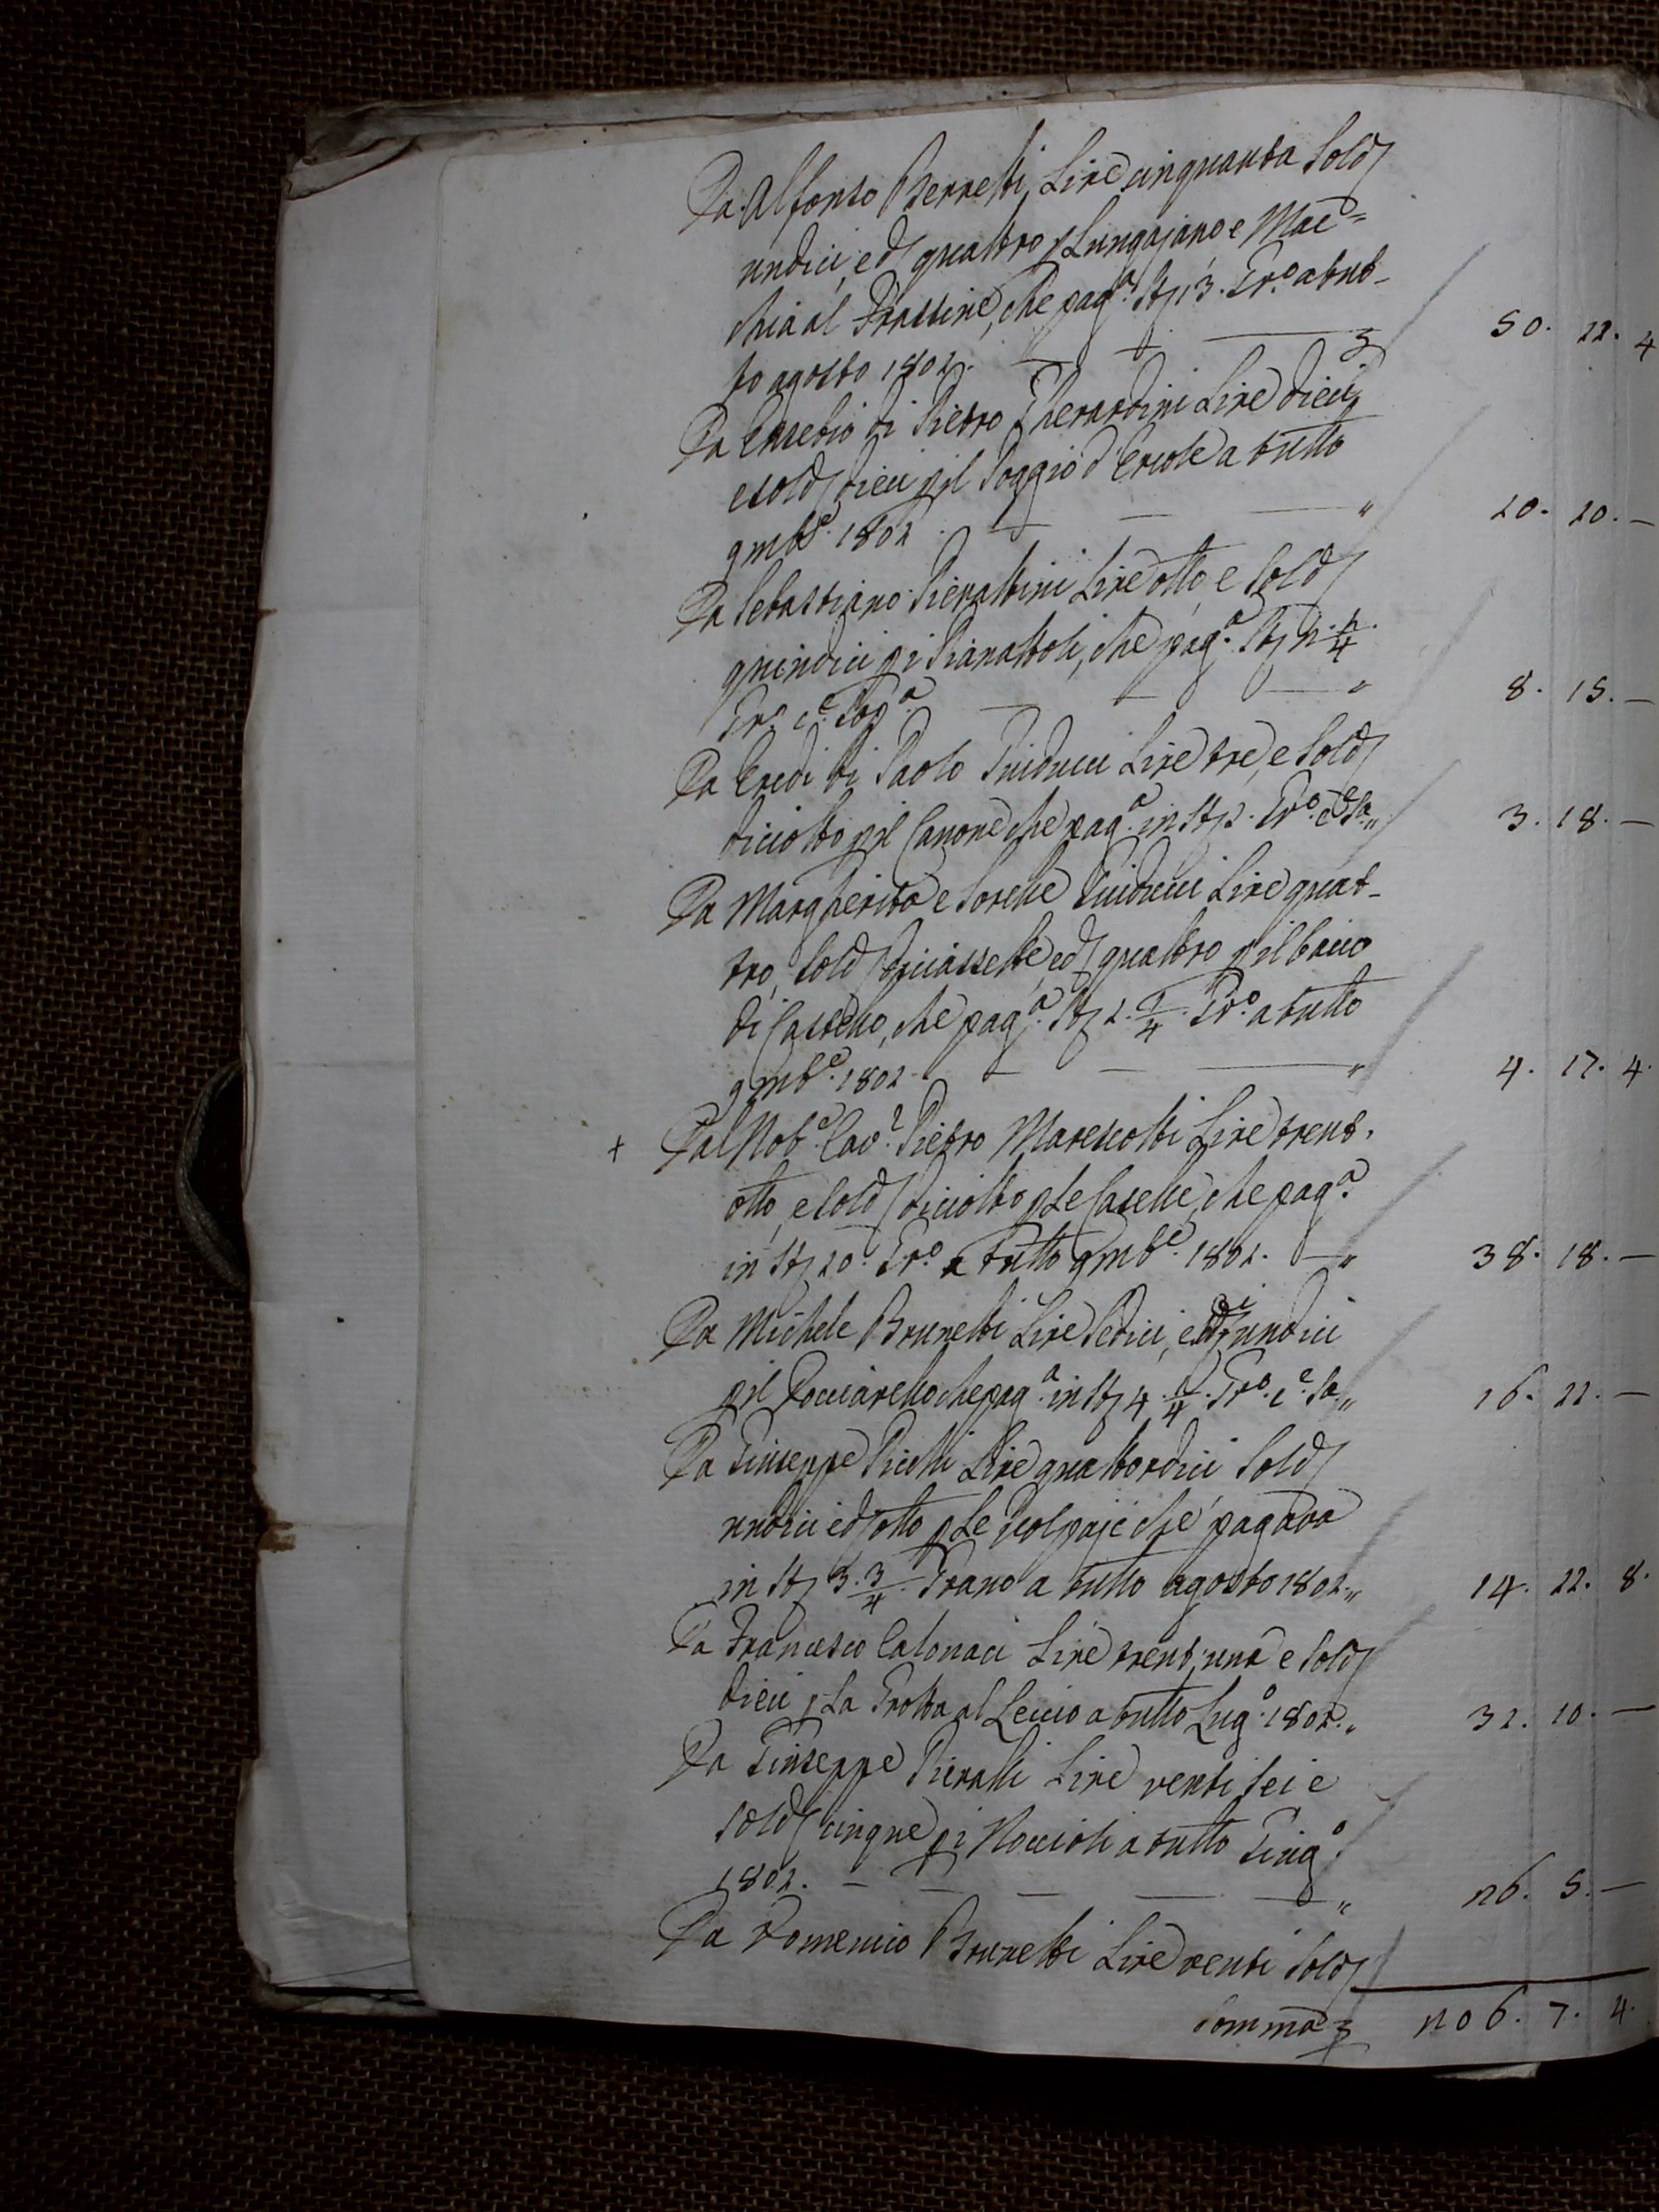 Da Alfonso Berretti Lire cinquanta Sold
undici, e d quattro p Lungajano e Mac=
chia al Frassine, che pag.ª St 13. Gr.º a tut-
to agosto 1802. — — — 50. 11. 4
Da Eusebio di Pietro Gherardini Lire dieci
e sold dieci p il Poggio d'Ercole a tutto
9mb.e 1802. — — — " 10. 10. —
Da Sebastiano Pierattini Lire otto, e Sold
quindici p i Pianattoli, che pag.ª St 2. 2/4.
Gr.º c.e Sop.ª — — — " 8. 15. —
Da Eredi di Paolo Guiducci Lire tre, e Sold
diciotto p il Canone che pag.ª in St 1. Gr.º c.e Sa. " 3. 18. —
Da Margherita e Sorelle Guiducci Lire quat-
tro, Sold diciassette, e d quattro p il bacio
di Castello, che pag.ª St 1. 1/4. Gr.º a tutto
9mb.e 1802. — — — " 4. 17. 4.
+ Dal Nob.e Cav.r Pietro Marescotti Lire trent'
otto, e Sold diciotto p Le Caselle, che pag.ª
in St 10. Gr.º a tutto 9mb.e 1802. — " 38. 18. —
Da Michele Brunetti Lire Sedici, e undici
p il Docciarello che pag.ª in St 4. 1/4. Gr.º c.e Sa. " 16. 11. —
Da Giuseppe Picchi Lire quattordici Sold
undici e d otto p Le Volpaje che pagava
in St 3. 3/4. Grano a tutto agosto 1802. " 14. 11. 8.
Da Francesco Calonaci Lire trent'una e Sold
dieci p La Grotta al Leccio a tutto Lug.º 1802. " 31. 10. —
Da Giuseppe Pieralli Lire venti sei e
Sold cinque p i Noccioli a tutto Giug.º
1802. — — — — — " 26. 5. —
Da Domenico Brunetti Lire venti Sold
Somma 206. 7. 4.